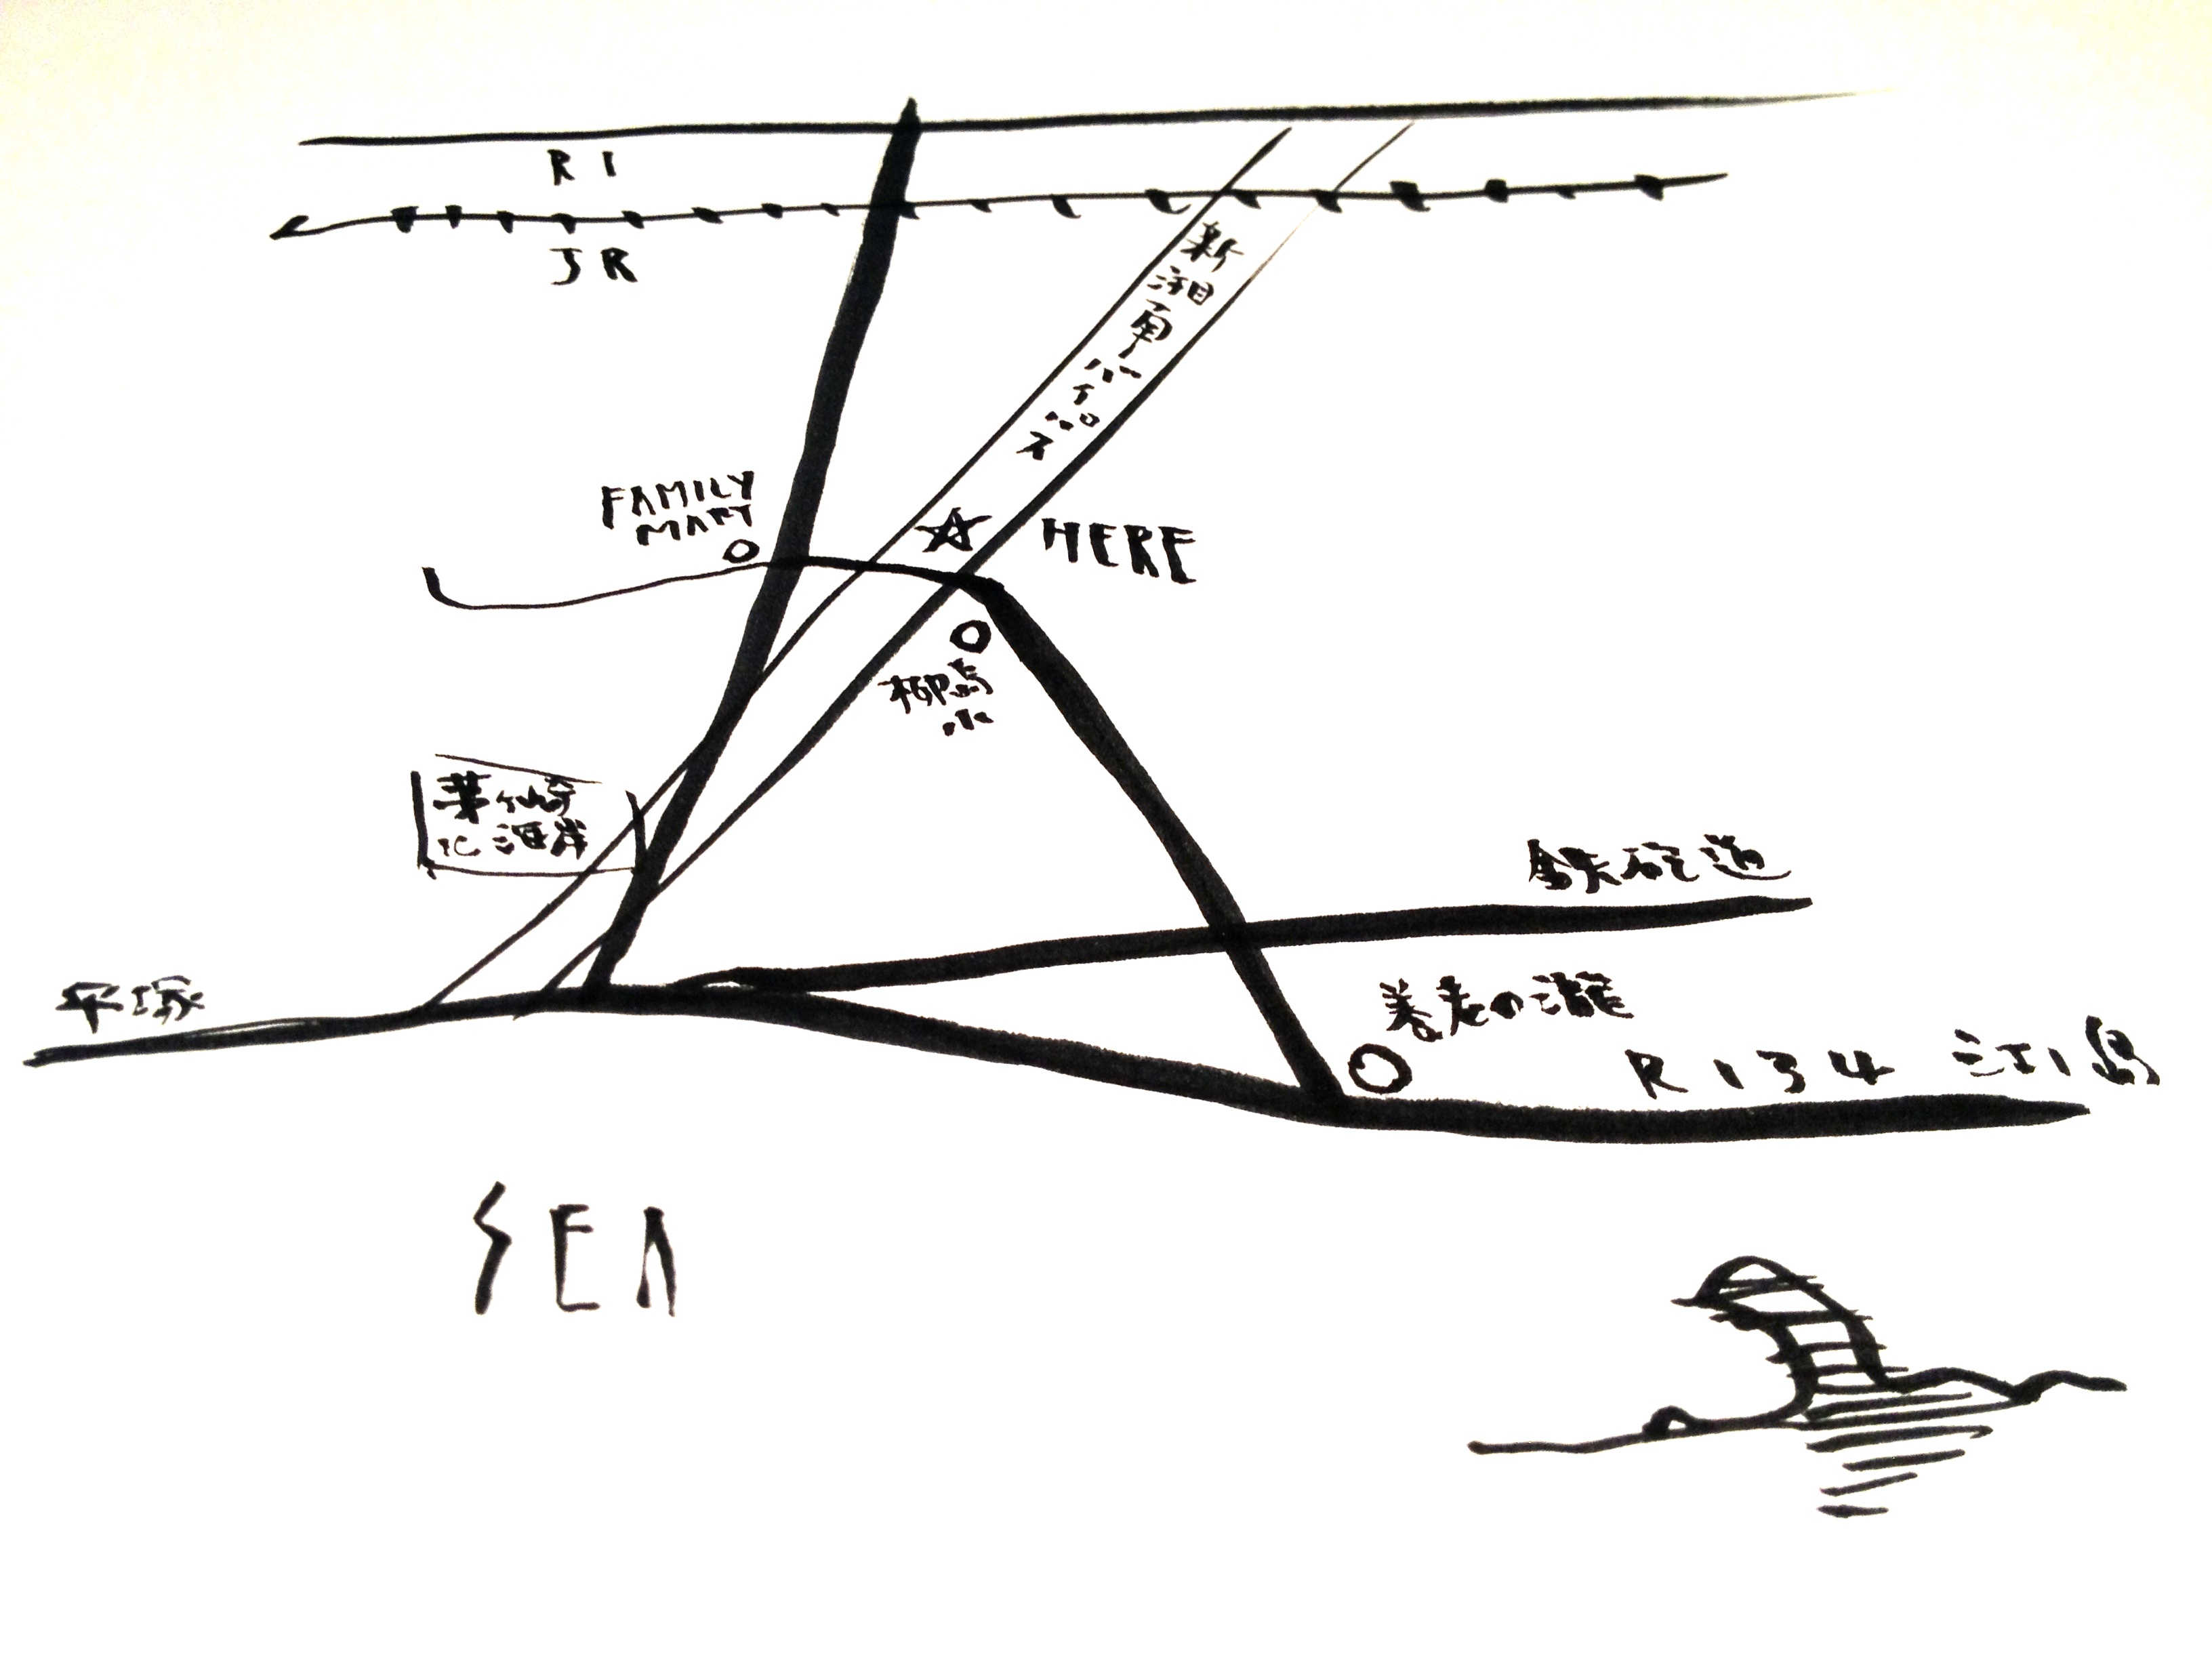 R1
JR
新
湘
南
バ
イ
パ
ス
FAMILY
MART
HERE
柳島
小
茅ヶ崎
海岸
鉄砲道
平塚
養老の瀧
R134 江ノ島
SEA